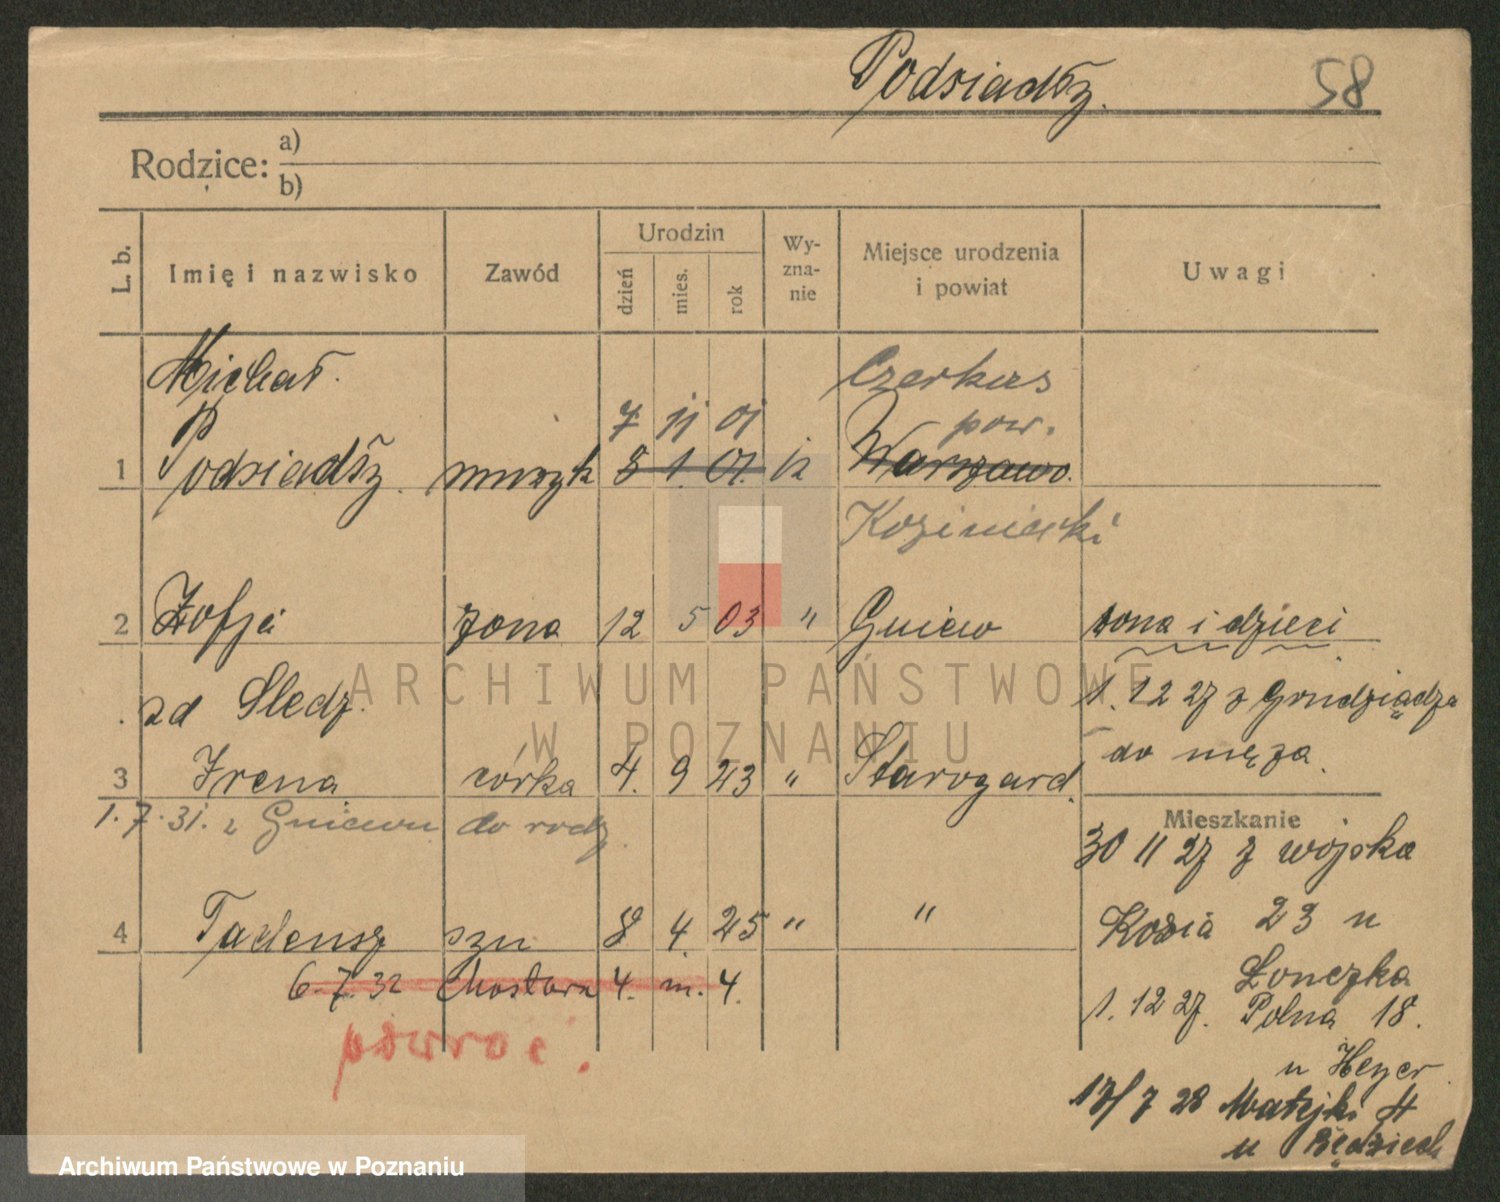 Podsiadły.
58
Rodzice: a)
b)
L. b.
Imię i nazwisko
Zawód
Urodzin
dzień
mies.
rok
Wy-
zna-
nie
Miejsce urodzenia
i powiat
Uwagi
Michał
Czerkas
7 11 01
pow.
1 Podsiadły. muzyk 8 1. 01. Warszawa.
Kozienicki
2 Zofja żona 12 5 03 " Gniew żona i dzieci
zd Sledz. 1. 12 27 z Grudziądza
do męża.
3 Irena córka 4. 9 23 " Starogard.
1. 7. 31. z Gniewu do rodz.
Mieszkanie
30 11 27 z wojska
4 Tadeusz syn 8 4. 25 " "
Kozia 23 u
Łonczka
6. 7. 32 Mostowa 4. m. 4.
1. 12 27. Polna 18.
powróć.
u Heyer
17/7 28 Matejki 4
u
ARCHIWUM PAŃSTWOWE
W POZNANIU
Archiwum Państwowe w Poznaniu